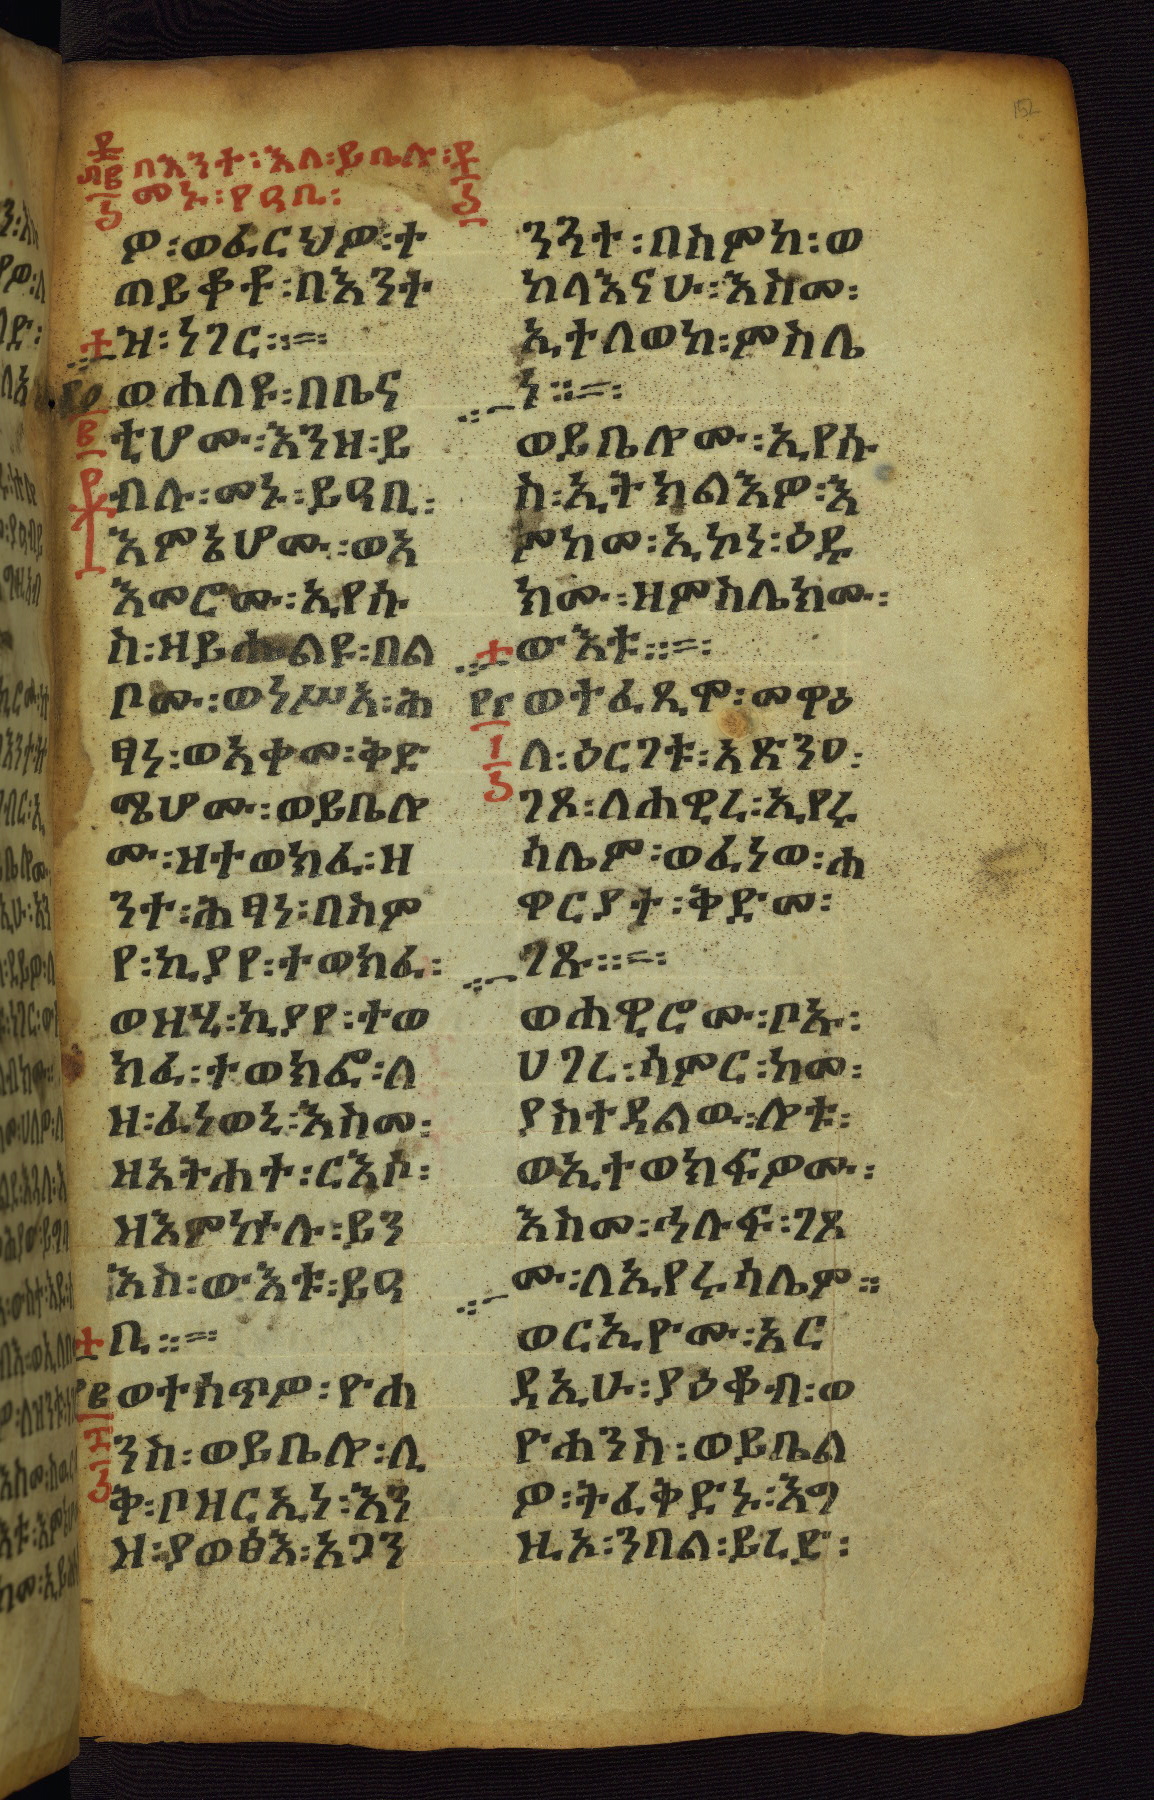 በእንተ፡እለ፡ይቤሉ፡
መኑ፡የዓቢ፡
ዎ፡ወፈርህዎ፡ተ
ጠይቆቶ፡በእንተ
ዝ፡ነገር።
ወሐለዩ፡በቤና
ቲሆሙ፡እንዘ፡ይ
ብሉ፡መኑ፡ይዓቢ፡
እምኔሆሙ፡ወአ
እመሮሙ፡ኢየሱ
ስ፡ዘይሐልዩ፡በል
ቦሙ፡ወነሥአ፡ሕ
ፃነ፡ወአቀመ፡ቅድ
ሜሆሙ፡ወይቤሎ
ሙ፡ዘተወክፈ፡ዘ
ንተ፡ሕፃነ፡በስም
የ፡ኪያየ፡ተወክፈ፡
ወዝሂ፡ኪያየ፡ተወ
ክፈ፡ተወክፎ፡ለ
ዘ፡ፈነወኒ፡እስመ፡
ዘአትሐተ፡ርእሶ፡
ዘእምኵሉ፡ይን
እስ፡ውእቱ፡ይዓ
ቢ።
ወተሰጥዎ፡ዮሐ
ንስ፡ወይቤሎ፡ሊ
ቅ፡ቦዘርኢነ፡እን
ዘ፡ያወፅእ፡አጋን
ንንተ፡በስምከ፡ወ
ከላእናሁ፡እስመ፡
ኢተለወከ፡ምስሌ
ነ።
ወይቤሎሙ፡ኢየሱ
ስ፡ኢትክልእዎ፡እ
ምከመ፡ኢኮነ፡ዕድ
ክሙ፡ዘምስሌክሙ፡
ውእቱ።
ወተፈጺሞ፡መዋዕ
ለ፡ዕርገቱ፡አጽንዐ፡
ገጾ፡ለሐዊረ፡ኢየሩ
ሳሌም፡ወፈነወ፡ሐ
ዋርያተ፡ቅድመ፡
ገጹ።
ወሐዊሮሙ፡ቦኡ፡
ሀገረ፡ሳምር፡ከመ፡
ያስተዳልው፡ሎቱ፡
ወኢተወክፍዎሙ፡
እስመ፡ኀሉፍ፡ገጾ
ሙ፡ለኢየሩሳሌም።
ወርኢዮሙ፡አር
ዳኢሁ፡ያዕቆብ፡ወ
ዮሐንስ፡ወይቤል
ዎ፡ትፈቅድኑ፡እግ
ዚኦ፡ንበል፡ይረድ፡